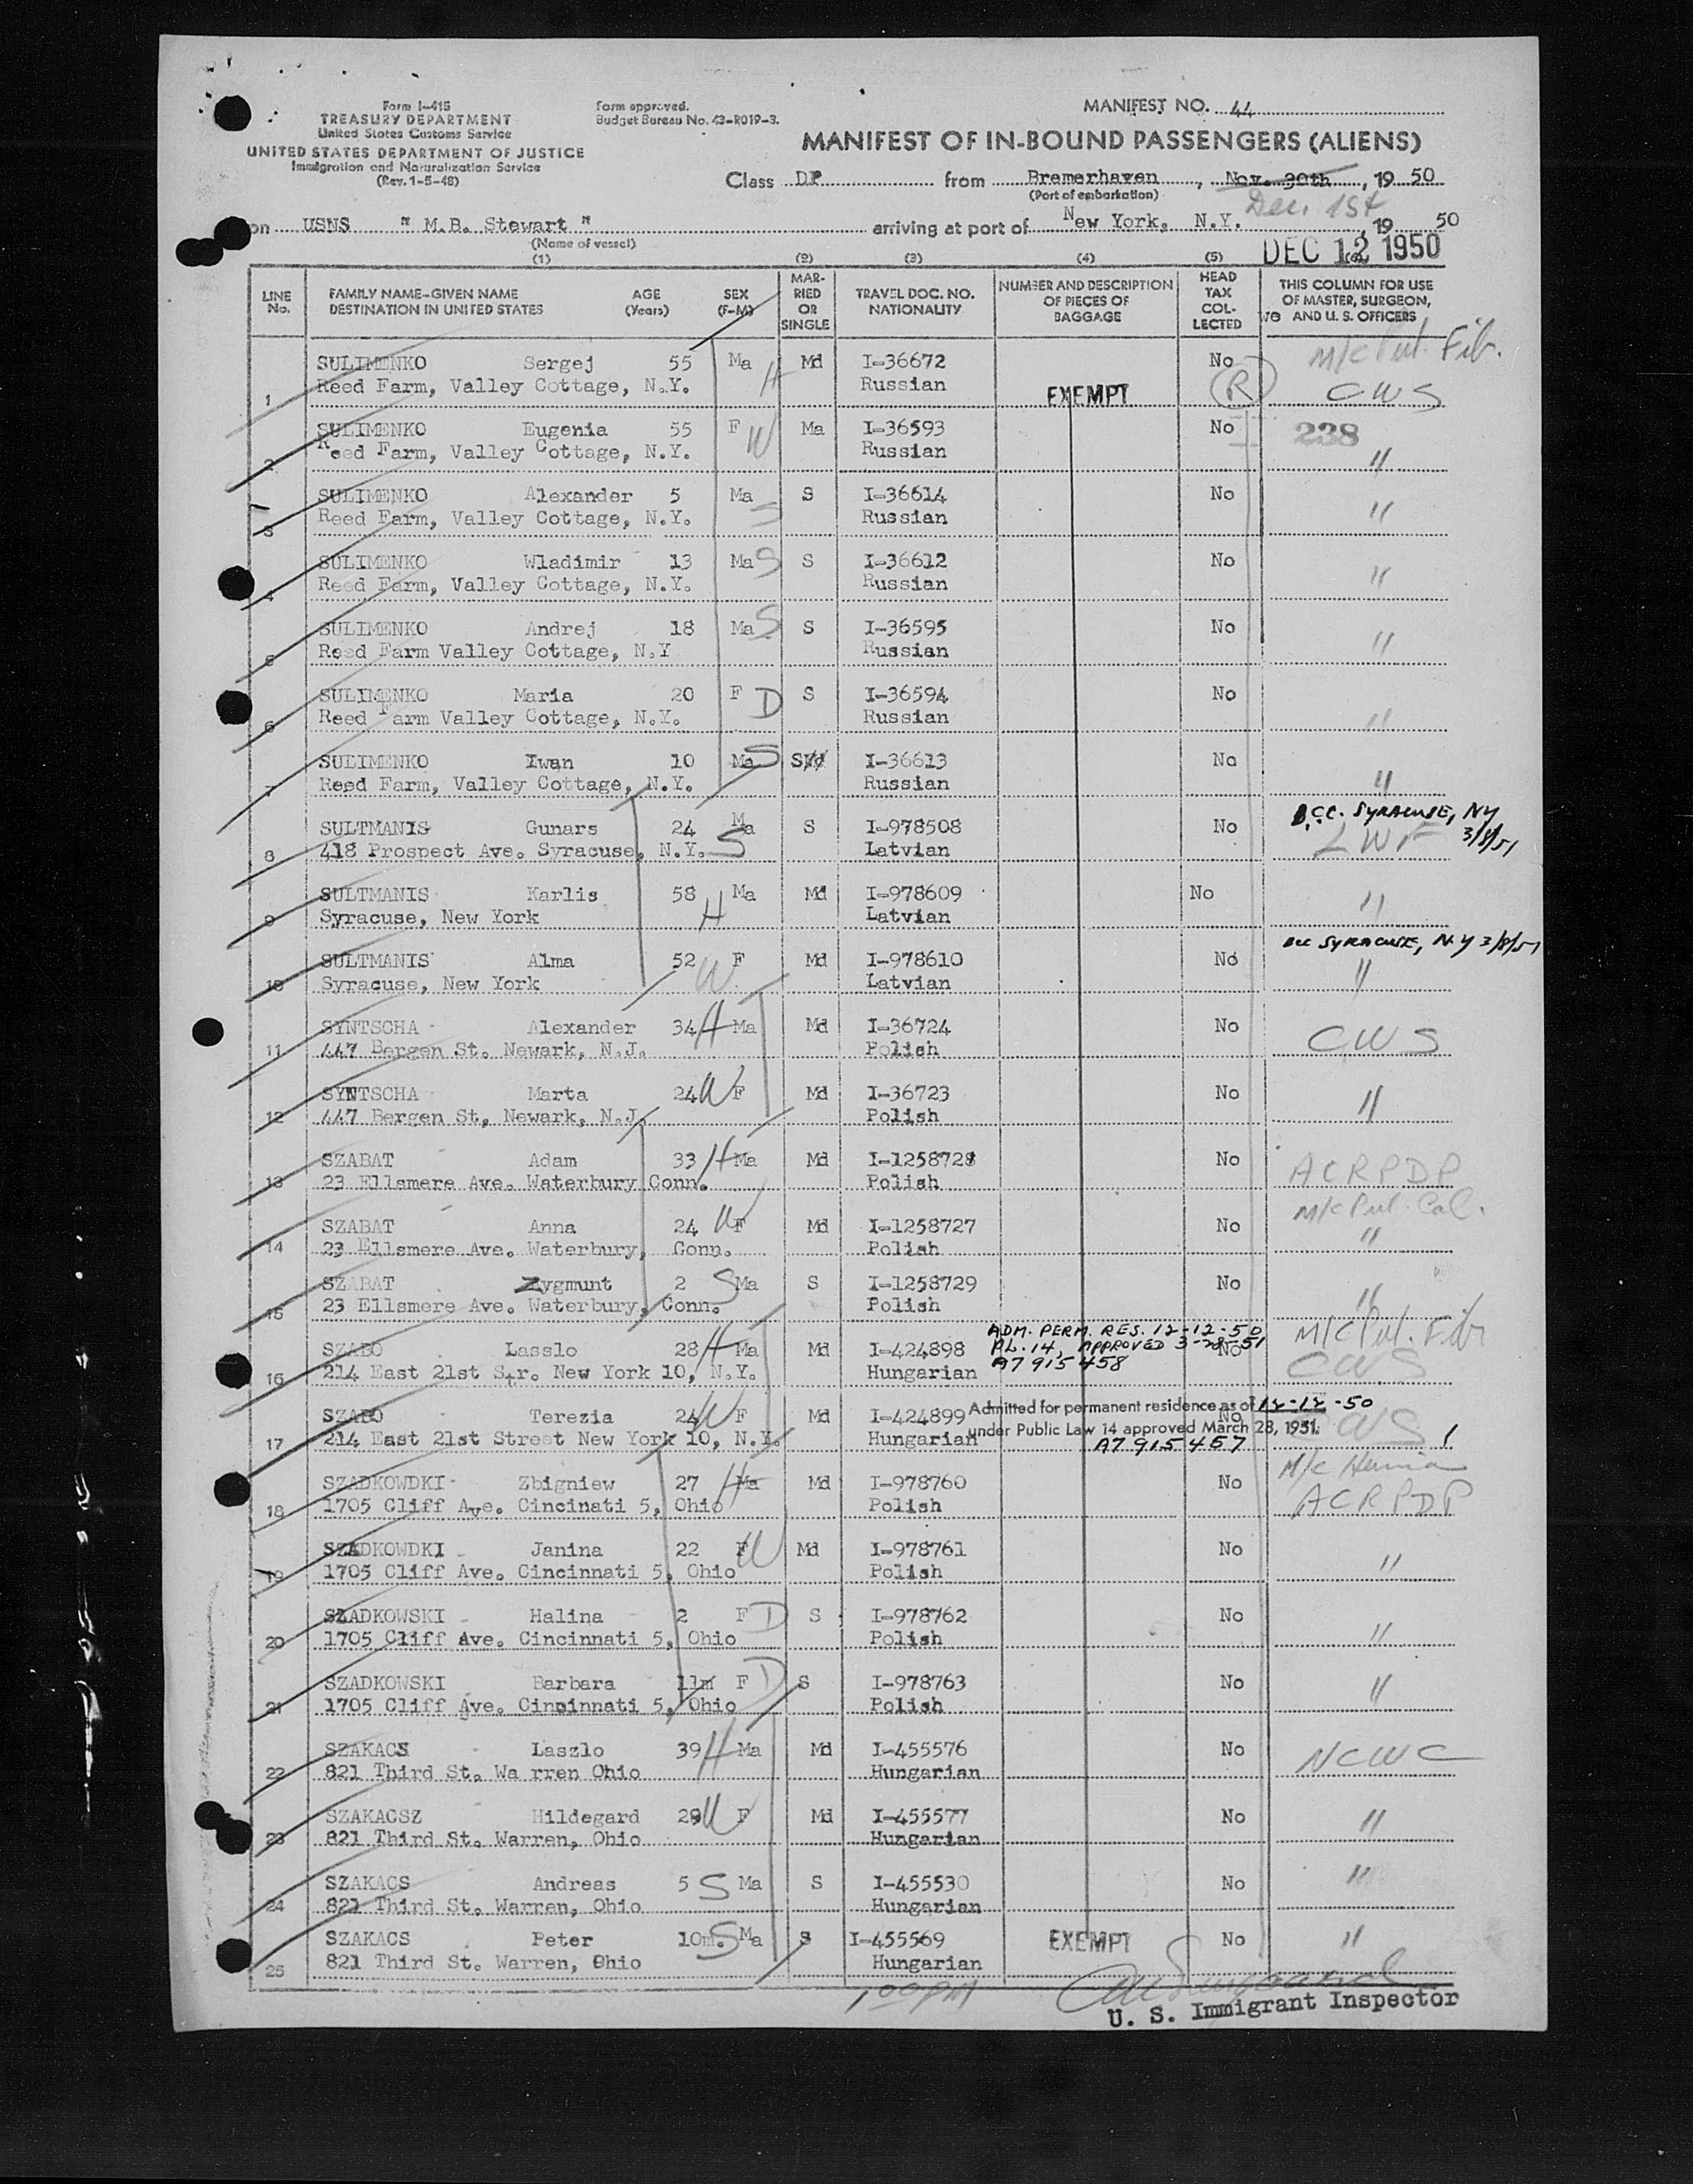 Form I-415
TREASURY DEPARTMENT
United States Customs Service
UNITED STATES DEPARTMENT OF JUSTICE
Immigration and Naturalization Service
(Rev. 1-5-48)
Form approved.
Budget Bureau No. 43-R019-3.
MANIFEST NO. 44
MANIFEST OF IN-BOUND PASSENGERS (ALIENS)
Class DP from Bremerhaven, Nov. 30th, 19 50
(Port of embarkation)
Dec. 1st
on USNS " M.B. Stewart " arriving at port of New York, N.Y. 19 50
(Name of vessel)
DEC 12 1950
(1) (2) (3) (4) (5)
LINE No. FAMILY NAME-GIVEN NAME DESTINATION IN UNITED STATES AGE (Years) SEX (F-M) MARRIED OR SINGLE TRAVEL DOC. NO. NATIONALITY NUMBER AND DESCRIPTION OF PIECES OF BAGGAGE HEAD TAX COLLECTED THIS COLUMN FOR USE OF MASTER, SURGEON, AND U. S. OFFICERS
SULIMENKO Sergej 55 Ma H Md I-36672 No M/c Pul. Fib.
1 Reed Farm, Valley Cottage, N.Y. Russian EXEMPT R CWS
SULIMENKO Eugenia 55 F W Ma I-36593 No 238
2 Reed Farm, Valley Cottage, N.Y. Russian "
SULIMENKO Alexander 5 Ma S S I-36614 No
3 Reed Farm, Valley Cottage, N.Y. Russian "
SULIMENKO Wladimir 13 Ma S S I-36612 No
4 Reed Farm, Valley Cottage, N.Y. Russian "
SULIMENKO Andrej 18 Ma S S I-36595 No
5 Reed Farm Valley Cottage, N.Y Russian "
SULIMENKO Maria 20 F D S I-36594 No
6 Reed Farm Valley Cottage, N.Y. Russian "
SULIMENKO Iwan 10 Ma S S I-36613 No
7 Reed Farm, Valley Cottage, N.Y. Russian "
SULTMANIS Gunars 24 Ma S S I-978508 No D.C.C. SYRACUSE, NY 3/8/51
8 418 Prospect Ave. Syracuse, N.Y. Latvian LWF
SULTMANIS Karlis 58 H Ma Md I-978609 No
9 Syracuse, New York Latvian "
SULTMANIS Alma 52 W F Md I-978610 No DCC SYRACUSE, NY 3/8/51
10 Syracuse, New York Latvian "
SYNTSCHA Alexander 34 H Ma Md I-36724 No
11 447 Bergen St. Newark, N.J. Polish CWS
SYNTSCHA Marta 24 W F Md I-36723 No
12 447 Bergen St, Newark, N.J. Polish "
SZABAT Adam 33 H Ma Md I-1258728 No
13 23 Ellsmere Ave. Waterbury Conn. Polish ACRPDP
M/c Pul. Cal.
SZABAT Anna 24 W F Md I-1258727 No
14 23 Ellsmere Ave. Waterbury, Conn. Polish "
SZABAT Zygmunt 2 S Ma S I-1258729 No
15 23 Ellsmere Ave. Waterbury, Conn. Polish "
ADM. PERM. RES. 12-12-50
PL. 14, APPROVED 3-28-51
A7 915 458
SZABO Lasslo 28 H Ma Md I-424898 No M/c Pul. Fib
16 214 East 21st Str. New York 10, N.Y. Hungarian CWS
SZABO Terezia 24 W F Md I-424899 No
Admitted for permanent residence as of 12-12-50
under Public Law 14 approved March 28, 1951.
A7 915 457
17 214 East 21st Street New York 10, N.Y. Hungarian CWS
SZADKOWDKI Zbigniew 27 H Ma Md I-978760 No M/c Hernia
18 1705 Cliff Ave. Cincinati 5, Ohio Polish ACRPDP
SZADKOWDKI Janina 22 F W Md I-978761 No
19 1705 Cliff Ave. Cincinnati 5, Ohio Polish "
SZADKOWSKI Halina 2 F D S I-978762 No
20 1705 Cliff Ave. Cincinnati 5, Ohio Polish "
SZADKOWSKI Barbara 11m F D S I-978763 No
21 1705 Cliff Ave. Cincinnati 5, Ohio Polish "
SZAKACS Laszlo 39 H Ma Md I-455576 No
22 821 Third St. Wa rren Ohio Hungarian NCWC
SZAKACSZ Hildegard 29 W F Md I-455577 No
23 821 Third St. Warren, Ohio Hungarian "
SZAKACS Andreas 5 S Ma S I-455530 No "
24 821 Third St. Warren, Ohio Hungarian
SZAKACS Peter 10m. S Ma S I-455569 EXEMPT No "
25 821 Third St. Warren, Ohio Hungarian
1:00 PM
U. S. Immigrant Inspector